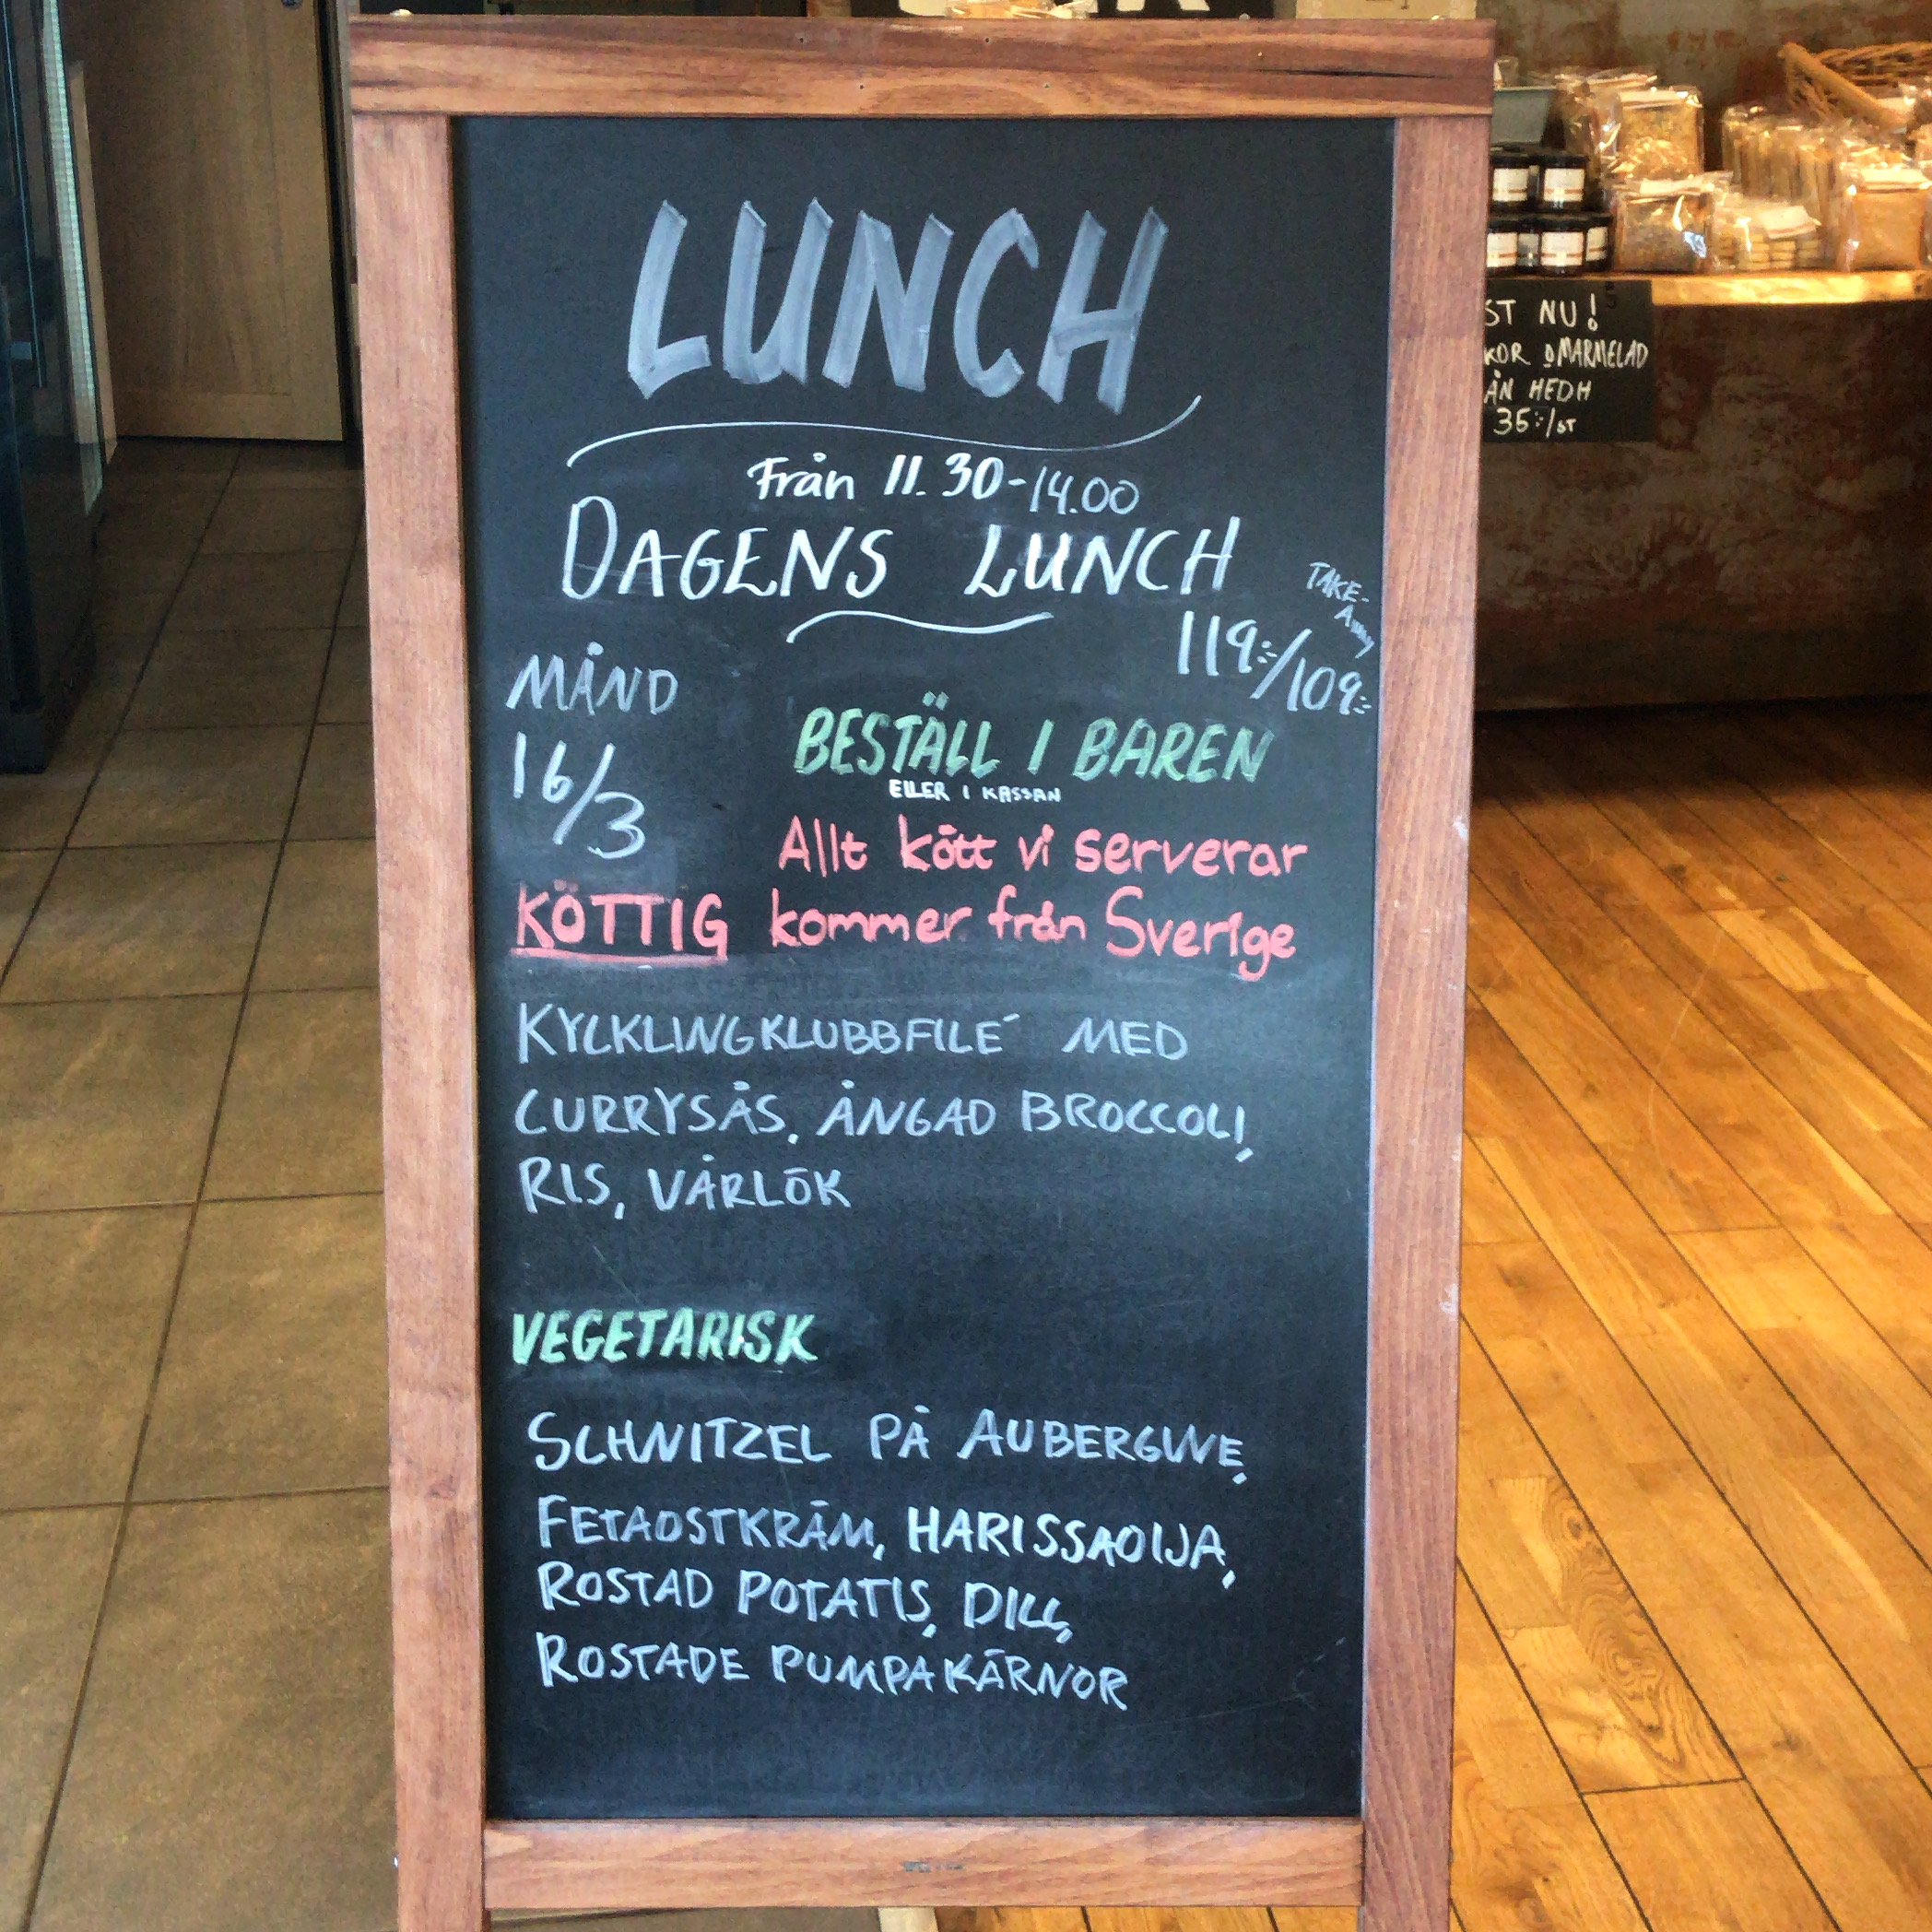 LUNCH
Från 11.30-14.00
DAGENS LUNCH
TAKE-
AWAY
119:-/109:-
MÅND
16/3
BESTÄLL I BAREN
ELLER I KASSAN
Allt kött vi serverar
kommer från Sverige
KÖTTIG
KYLCKLINGKLUBBFILÉ MED
CURRYSÅS, ÅNGAD BROCCOLI,
RIS, VÅRLÖK
VEGETARISK
SCHNITZEL PÅ AUBERGINE,
FETAOSTKRÄM, HARISSAOLJA,
ROSTAD POTATIS, DILL,
ROSTADE PUMPAKÄRNOR
ST NU!
KOR & MARMELAD
ÅN HEDH
35:-/ST